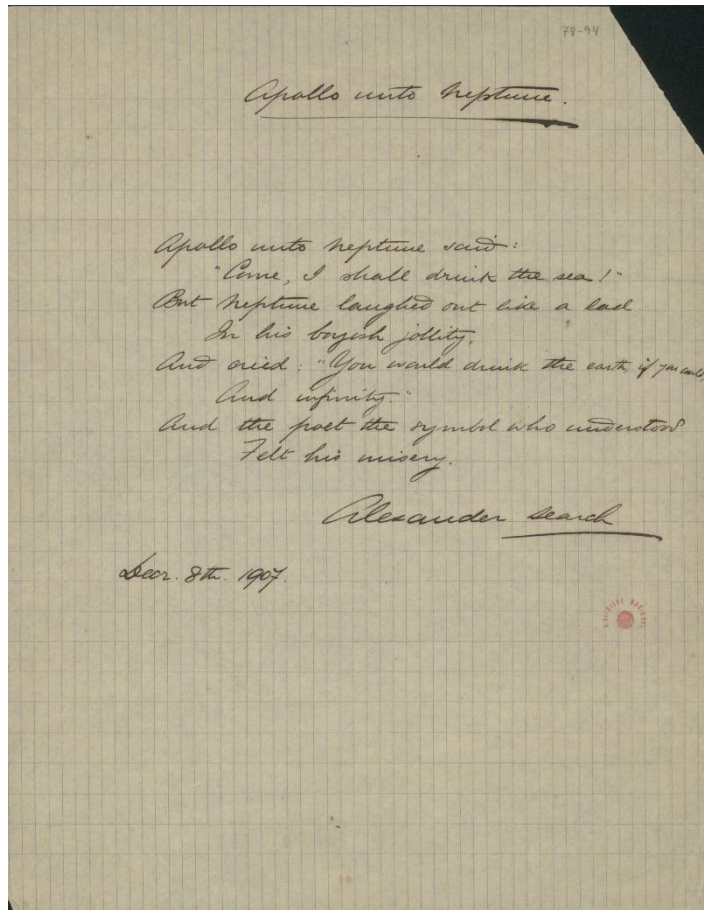 78-94
Apollo unto Neptune.
Apollo unto Neptune said:
"Come, I shall drink the sea!"
But Neptune laughed out like a lad
In his boyish jollity,
And cried: "You would drink the earth, if you could,
And infinity."
And the poet the symbol who understood
Felt his misery.
Alexander Search
Decr. 8th. 1907.
BIBLIOTECA NACIONAL